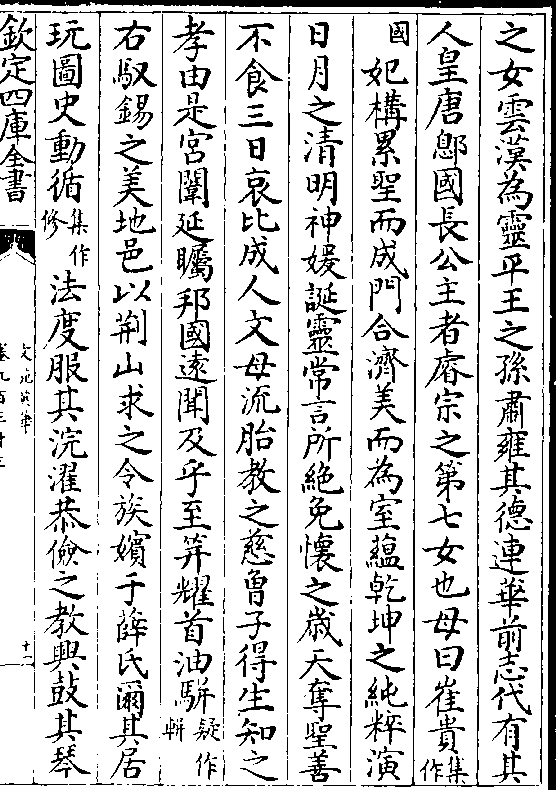 之女雲漢為靈平王之孫肅雍其德連華前志代有其
人皇唐鄎國長公主者睿宗之第七女也母曰崔貴集作
國妃構累聖而成門合濟美而為室蘊乾坤之純粹演
日月之清明神媛誕靈常言所絶免懷之歲天奪聖善
不食三日哀比成人文母流胎教之慈曽子得生知之
孝由是宮闈延矚邦國遠聞及乎至筓耀首油駢疑作輧
右馭錫之美地邑以荆山求之令族嬪于薛氏爾其居
玩圖史動循集作修法度服其浣濯恭儉之教興鼓其琴
欽定四庫全書
文苑英華
卷九百三十三
十二